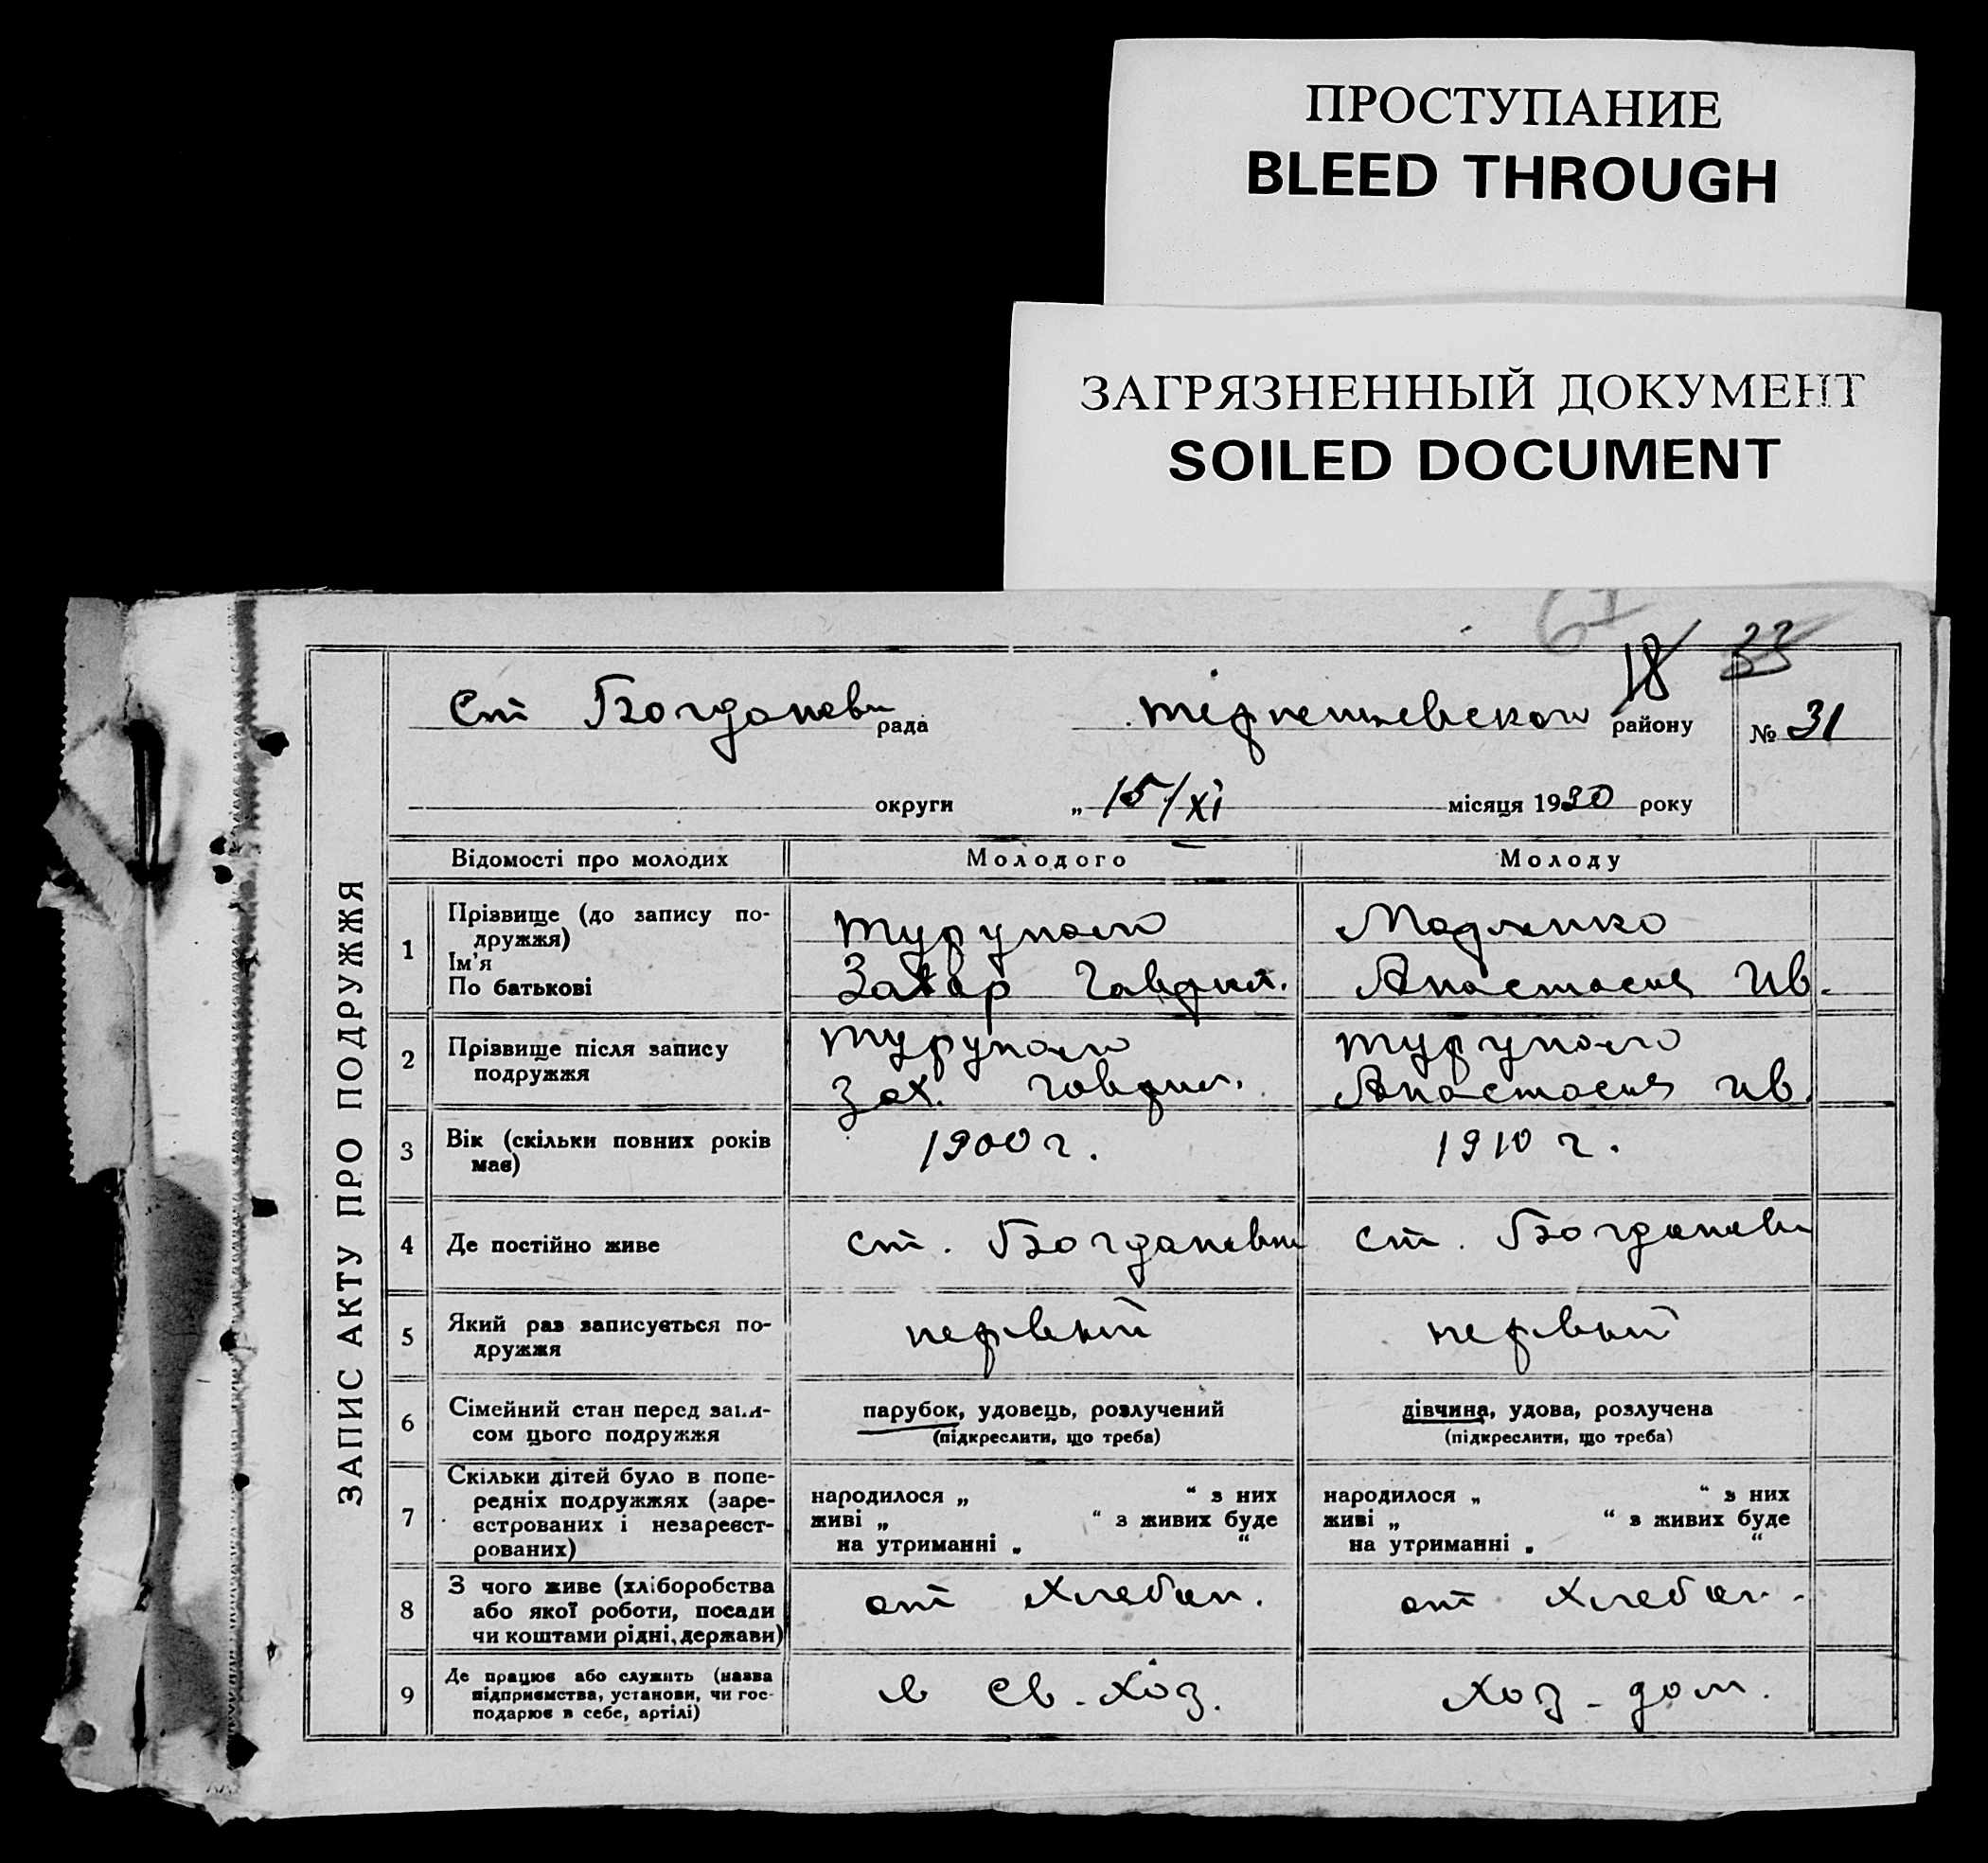 ПРОСТУПАНИЕ
BLEED THROUGH
ЗАГРЯЗНЕННЫЙ ДОКУМЕНТ
SOILED DOCUMENT
61
18 33
Ст Богданова рада району № 31
округи „ 15/XI місяця 1930 року
ЗАПИС АКТУ ПРО ПОДРУЖЖЯ
Відомості про молодих Молодого Молоду
1 Прізвище (до запису по-
дружжя)
Ім'я
По батькові
Захар Анастасия Ив.
2 Прізвище після запису
подружжя
Зах. Анастасия Ив.
3 Вік (скільки повних років
має)
1900 г. 1910 г.
4 Де постійно живе ст. ст.
5 Який раз записується по-
дружжя
первый первый
6 Сімейний стан перед запи-
сом цього подружжя
парубок, удовець, розлучений дівчина, удова, розлучена
(підкреслити, що треба) (підкреслити, що треба)
7 Скільки дітей було в попе-
редніх подружжях (заре-
єстрованих і незареєст-
рованих)
народилося „ “ з них народилося „ “ з них
живі „ “ з живих буде живі „ “ з живих буде
на утриманні „ “ на утриманні „ “
8 З чого живе (хліборобства
або якої роботи, посади
чи коштами рідні, держави)
от хлебоп. от хлебоп.
9 Де працює або служить (назва
підприємства, установи, чи гос-
подарює в себе, артілі)
в св-хоз. хоз-дом.